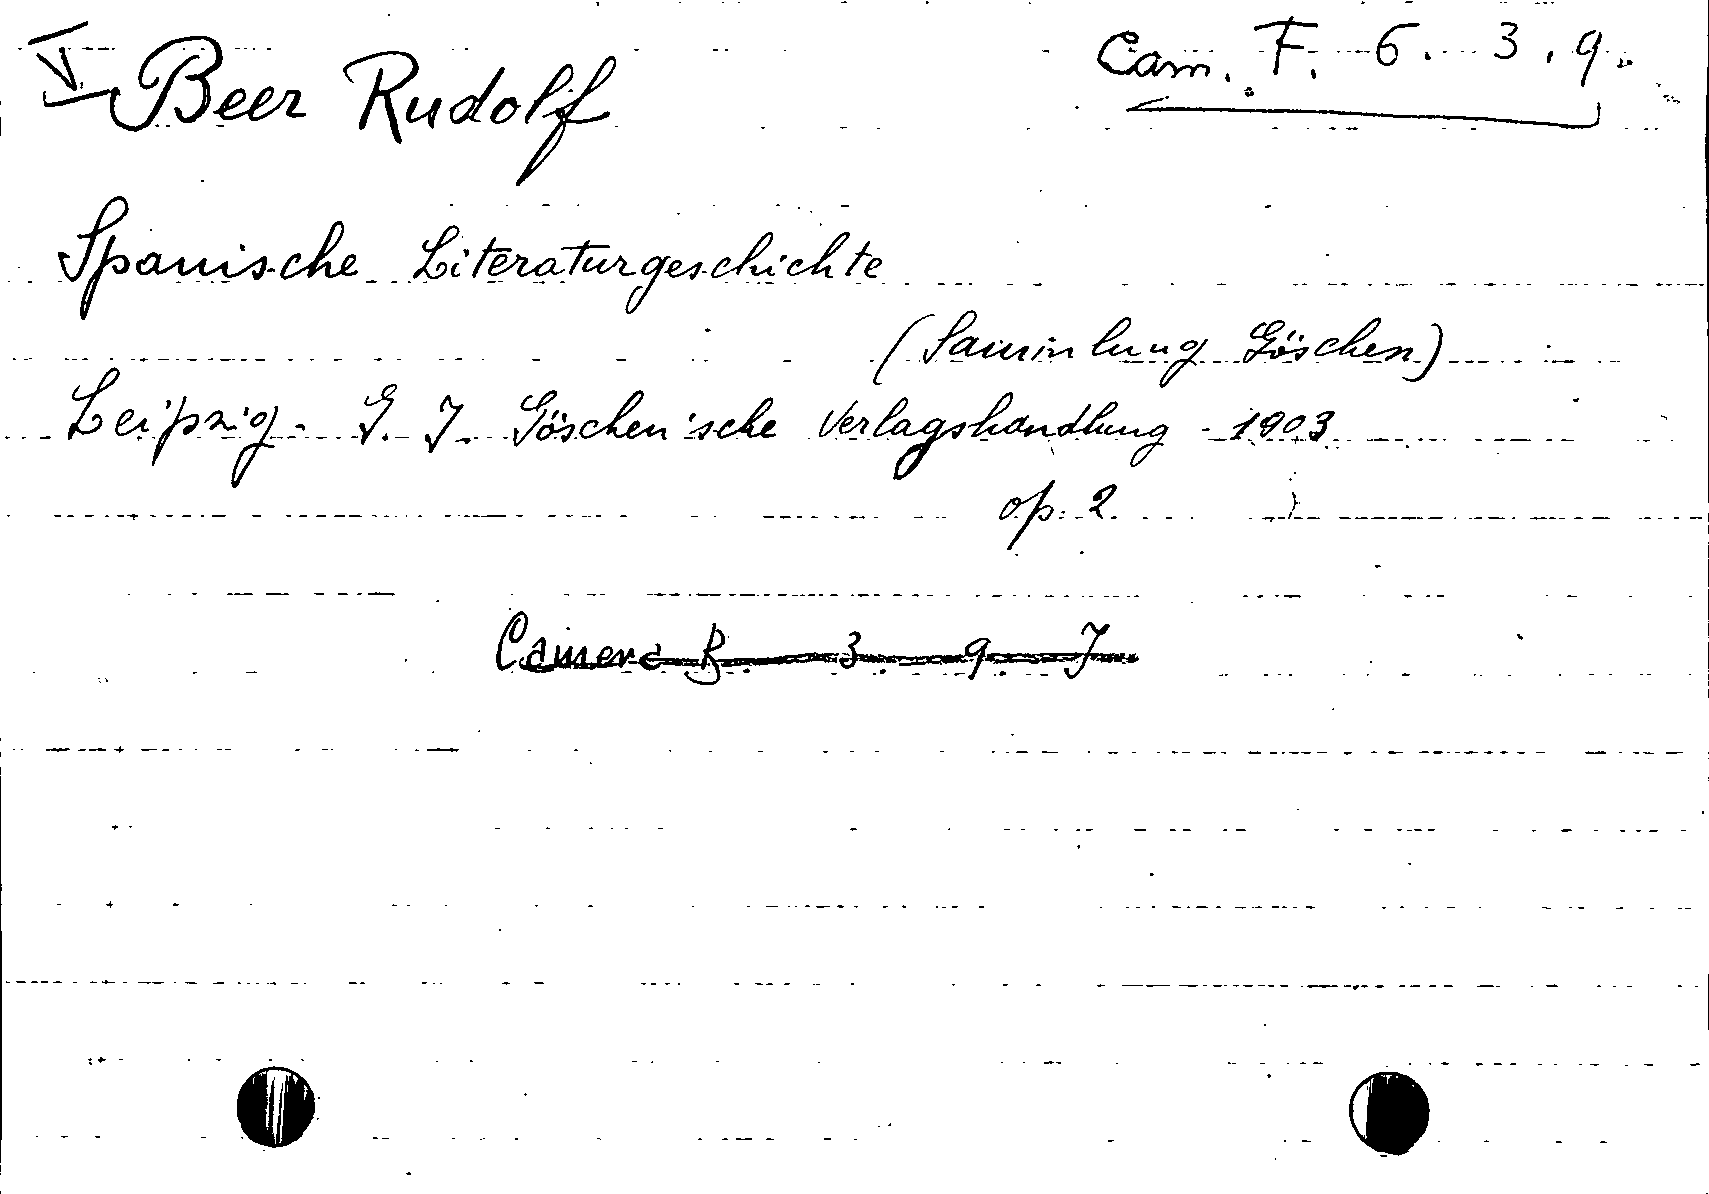 V Beer Rudolf
Cam. F. 6. 3. 9.
Spanische Literaturgeschichte
(Sammlung Göschen)
Leipzig. G. J. Göschen'sche Verlagshandlung - 1903
op. 2
Camera B. 3. 9. J.